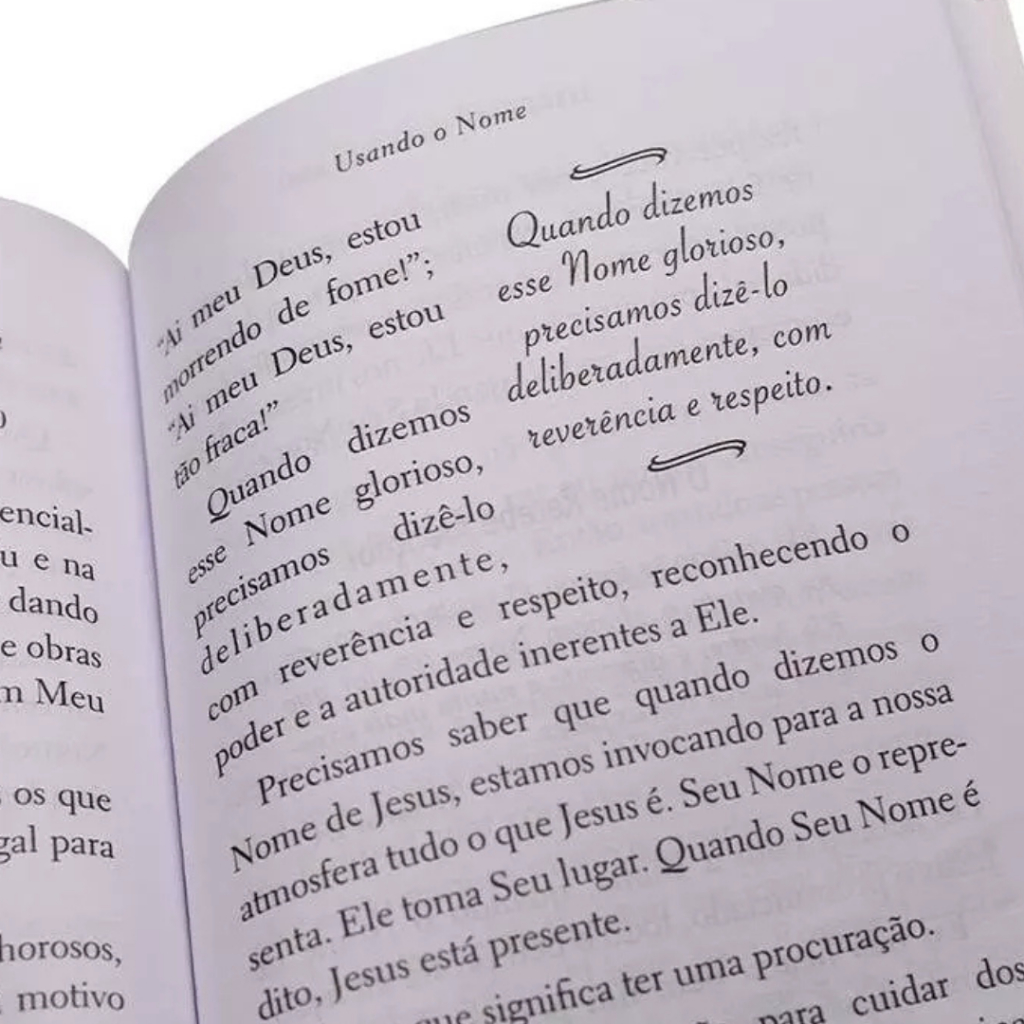 encial-
u e na
dando
e obras
m Meu
os que
gal para
horosos,
motivo
Usando o Nome
“Ai meu Deus, estou
morrendo de fome!”;
“Ai meu Deus, estou
tão fraca!”
Quando dizemos
esse Nome glorioso,
precisamos dizê-lo
deliberadamente,
Quando dizemos
esse Nome glorioso,
precisamos dizê-lo
deliberadamente, com
reverência e respeito.
com reverência e respeito, reconhecendo o
poder e a autoridade inerentes a Ele.
Precisamos saber que quando dizemos o
Nome de Jesus, estamos invocando para a nossa
atmosfera tudo o que Jesus é. Seu Nome o repre-
senta. Ele toma Seu lugar. Quando Seu Nome é
dito, Jesus está presente.
que significa ter uma procuração.
para cuidar dos